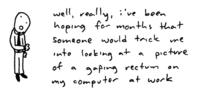 well, really, i've been
hoping for months that
someone would trick me
into looking at a picture
of a gaping rectum on
my computer at work